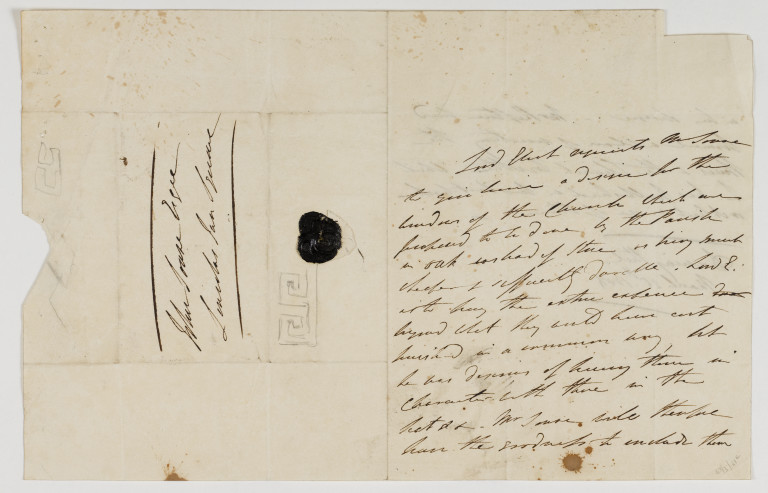 John Soane Esqre
Lincolns Inn Square
Lord Eliot requests Mr Soane
to give him a design for the
windows of the Church which are
proposed to be done by the Parish
in oak instead of stone as being much
cheaper & sufficiently durable. Lord E:
is to pay the extra expence
beyond what they would have cost
finished in a common way, but
he was desirous of having them in
character with those in the
Mr Soane will therefore
have the goodness to include them